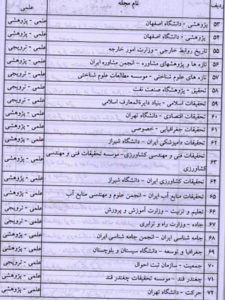 ردیف نام مجله علمی
۵۳ پژوهشی - دانشگاه اصفهان علمی - پژوهشی
۵۴ پژوهشی - دانشگاه اصفهان علمی - پژوهشی
۵۵ تاریخ روابط خارجی - وزارت امور خارجه علمی - ترویجی
۵۶ تازه ها و پژوهشهای مشاوره - انجمن مشاوره ایران علمی - پژوهشی
۵۷ تازه های علوم شناختی - موسسه مطالعات علوم شناختی علمی - پژوهشی
۵۸ تحقیق - پژوهشگاه صنعت نفت علمی - ترویجی
۵۹ تحقیقات اسلامی - بنیاد دایرةالمعارف اسلامی علمی - ترویجی
۶۰ تحقیقات اقتصادی - دانشگاه تهران علمی - پژوهشی
۶۱ تحقیقات جغرافیایی - خصوصی علمی - پژوهشی
۶۲ تحقیقات دامپزشکی ایران - دانشگاه شیراز علمی - پژوهشی
۶۳ تحقیقات فنی و مهندسی کشاورزی - موسسه تحقیقات فنی و مهندسی علمی - پژوهشی
کشاورزی
۶۴ تحقیقات کشاورزی ایران - دانشگاه شیراز علمی - پژوهشی
۶۵ تحقیقات منابع آب ایران - انجمن علوم و مهندسی منابع آب علمی - پژوهشی
۶۶ تعلیم و تربیت - وزارت آموزش و پرورش علمی - پژوهشی
۶۷ جاده - وزارت راه و ترابری علمی - ترویجی
۶۸ جامعه شناسی ایران - انجمن جامعه شناسی ایران علمی - پژوهشی
۶۹ جغرافیا و توسعه - دانشگاه سیستان و بلوچستان علمی - پژوهشی
۷۰ جمعیت - سازمان ثبت احوال علمی - ترویجی
۷۱ چغندر قند - موسسه تحقیقات چغندر قند علمی - پژوهشی
۷۲ حرکت - دانشگاه تهران علمی - پژوهشی